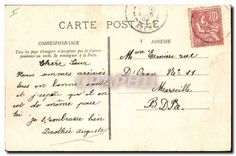 CARTE POSTALE
CORRESPONDANCE
ADRESSE
Tous les pays étrangers n'acceptent pas la Correspondance
au verso, se renseigner à la Poste.
Chère Sœur
Nous sommes arrivés
tous en bonne santé
et j'espère qu'il en
est de même pour
toi
Je t'embrasse bien
auguste
Mme
rue
D' N° 11
Marseille
B. D. R.
10